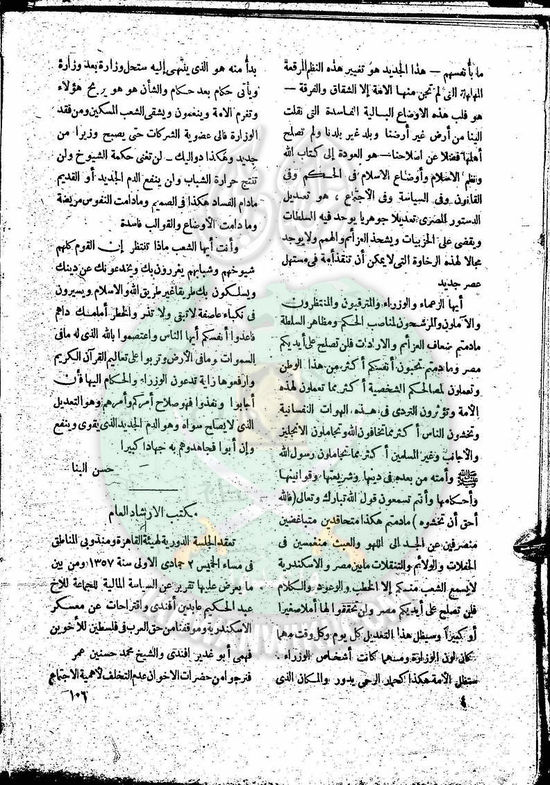 ما بأنفسهم — هذا الجديد هو تغيير هذه النظم المرقعة
المهلهلة التى لم تجن منها الأمة إلا الشقاق والفرقة —
هو قلب هذه الأوضاع البالية الفاسدة التى نقلت
الينا من أرض غير أرضنا وبلد غير بلدنا ولم تصلح
أهلها فضلا عن اصلاحنا — هو العودة إلى كتاب الله
ونظم الاسلام وأوضاع الاسلام فى الحكم وفى
القانون وفى السياسة وفى الاجتماع ، هو تعديل
الدستور المصرى تعديلا جوهريا توحد فيه السلطات
ويقضى على الحزبيات ويشحذ العزائم والهمم ولا يوجد
مجالا لهذه الرخاوة التى لا يمكن أن تنقذ أمة فى مستهل
عصر جديد
أيها الزعماء والوزراء والمترقبون والمنتظرون
والآملون والمرشحون لمناصب الحكم ومظاهر السلطة
مادمتم ضعاف العزائم والارادات فلن تصلح على أيديكم
مصر وما دمتم تحبون أنفسكم أكثر من هذا الوطن
وتعملون لمصالحكم الشخصية أكثر مما تعملون لهذه
الأمة وتؤثرون التردى فى هذه الهوات النفسانية
وتخشون الناس أكثر مما تخافون الله وتجاملون الانجليز
والأجانب وغير المسلمين أكثر مما تجاملون رسول الله
ﷺ وأمته من بعده فى دينها وشريعتها وقوانينها
وأحكامها وأنتم تسمعون قول الله تبارك وتعالى (فالله
أحق أن تخشوه) مادمتم هكذا متحاقدين متباغضين
منصرفين عن الجد الى اللهو والعبث منغمسين فى
الحفلات والولائم والتنقلات مابين مصر والاسكندرية
لا يسمع الشعب منكم إلا الخطب والوعود والكلام
فلن تصلح على أيديكم مصر ولن تحققوا لها أملا صغيرا
أو كبيراً وسيظل هذا التعديل كل يوم وكل وقت مهما
كان لون الوزارة ومهما كانت أشخاص الوزراء
ستظل الأمة هكذا كحمار الرحى يدور والمكان الذى
٤
بدأ منه هو الذى ينتهى إليه ستحل وزارة بعد وزارة
ويأتى حكام بعد حكام والشأن هو هو يربح هؤلاء
وتغرم الأمة وينعمون ويشقى الشعب المسكين ومن فقد
الوزارة فالى عضوية الشركات حتى يصبح وزيرا من
جديد وهكذا دواليك — لن تغنى حكمة الشيوخ ولن
تنتج حرارة الشباب ولن ينفع الدم الجديد أو القديم
مادام الفساد هكذا فى الصميم ومادامت النفوس مريضة
ومادامت الأوضاع والقوالب فاسدة
وأنت أيها الشعب ماذا تنتظر إن القوم كلهم
شيوخهم وشبابهم يغررون بك ويخدعونك عن دينك
ويسلكون بك طريقا غير طريق الله والاسلام ويسيرون
فى نكباء عاصفة لا تبقى ولا تذر والخطر أمامك داهم
فأعدوا أنفسكم أيها الناس واعتصموا بالله الذى له مافى
السموات ومافى الأرض وتربوا على تعاليم القرآن الكريم
وارفعوها راية تدعون الوزراء والحكام اليها فأن
أجابوا ونفذوا فهو صلاح أمركم وأمرهم وهو التعديل
الذى لا يصلح سواه وهو الدم الجديد الذى يقوى وينفع
وإن أبوا فجاهدوهم به جهادا كبيرا
حسن البنا
مكتب الارشاد العام
تعقد الجلسة الدورية لهيئة القاهرة ومندوبى المناطق
فى مساء الخميس ٢ جمادى الأولى سنة ١٣٥٧ ومن بين
ما يعرض عليها تقرير عن السياسة المالية للجماعة للأخ
عبد الحكيم عابدين أفندى واقتراحات عن معسكر
الاسكندرية وموقفنا من حق العرب فى فلسطين للأخوين
فهمى أبو غدير افندى والشيخ محمد حسنين عمر
فنرجو من حضرات الاخوان عدم التخلف لأهمية الاجتماع
١٠٦